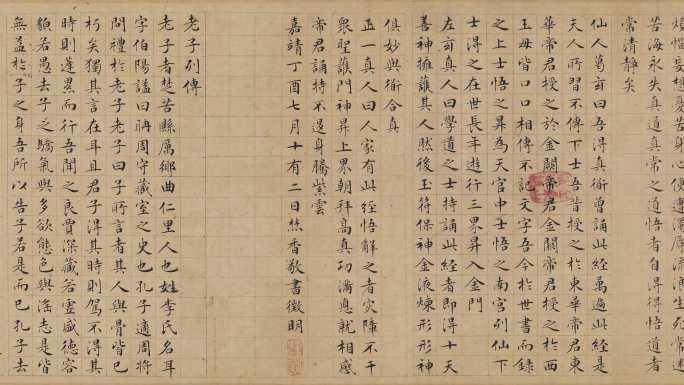 煩惱妄想憂苦身心便遭濁辱流浪生死常
苦海永失真道真常之道悟者自得得悟道者
常清靜矣
仙人葛玄曰吾得真衜曾誦此經萬遍此經是
天人所習不傳下士吾昔授之於東華帝君東
華帝君授之於金闕帝君金闕帝君授之於西
王母皆口口相傳不記文字吾今於世書而録
之上士悟之昇為天官中士悟之南宮列仙下
士得之在世長年遊行三界昇入金門
左玄真人曰學道之士持誦此經者即得十天
善神擁護其人然後玉符保神金液煉形形神
俱妙與衜合真
正一真人曰人家有此經悟解之者灾障不干
衆聖護門神昇上界朝拜高真功滿惪就相感
帝君誦持不退身騰紫雲
嘉靖丁酉七月十有二日焚香敬書徵明
老子列傳
老子者楚苦縣厲鄉曲仁里人也姓李氏名耳
字伯陽謚曰聃周守藏室之史也孔子適周將
問禮於老子老子曰子所言者其人與骨皆已
朽矣獨其言在耳且君子得其時則駕不得其
時則蓬累而行吾聞之良賈深藏若虛盛德容
貌若愚去子之驕氣與多欲態色與淫志是皆
無益於子之身吾所以告子若是而已孔子去